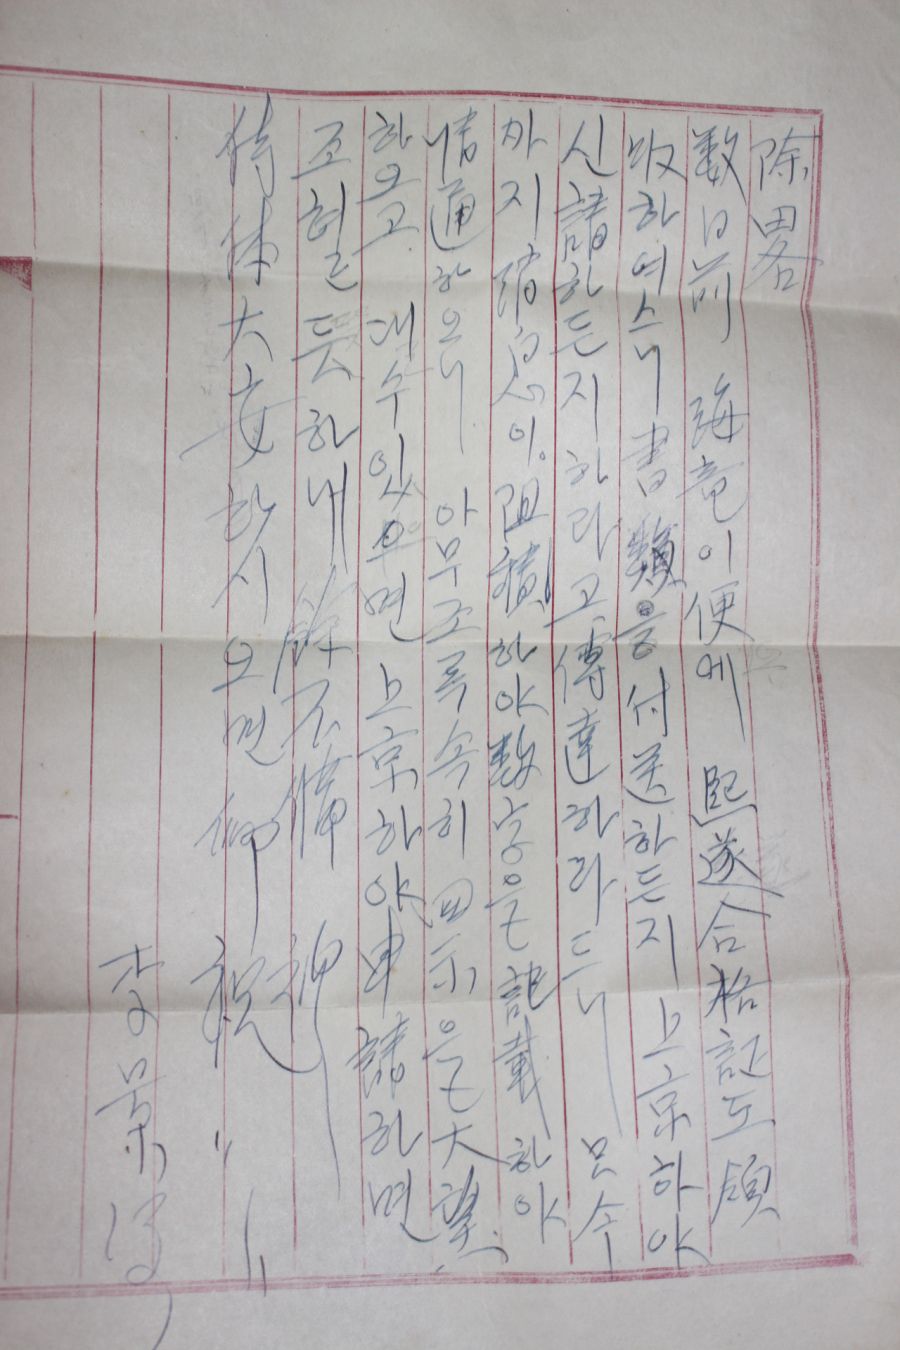 除畧
数日前 海竜이便에 熙遂合格証도 領
収하여스니 書類을付送하든지 上京하야
신請하든지하라고傳達하라드니
까지消息이 阻積하야数字을記載하야
情通하온니 아무조록속히回示을大望
하오고 대수있으면上京하야申請하면
조헐듯하내 餘不備 
侍体大安하시오면 祝
李景